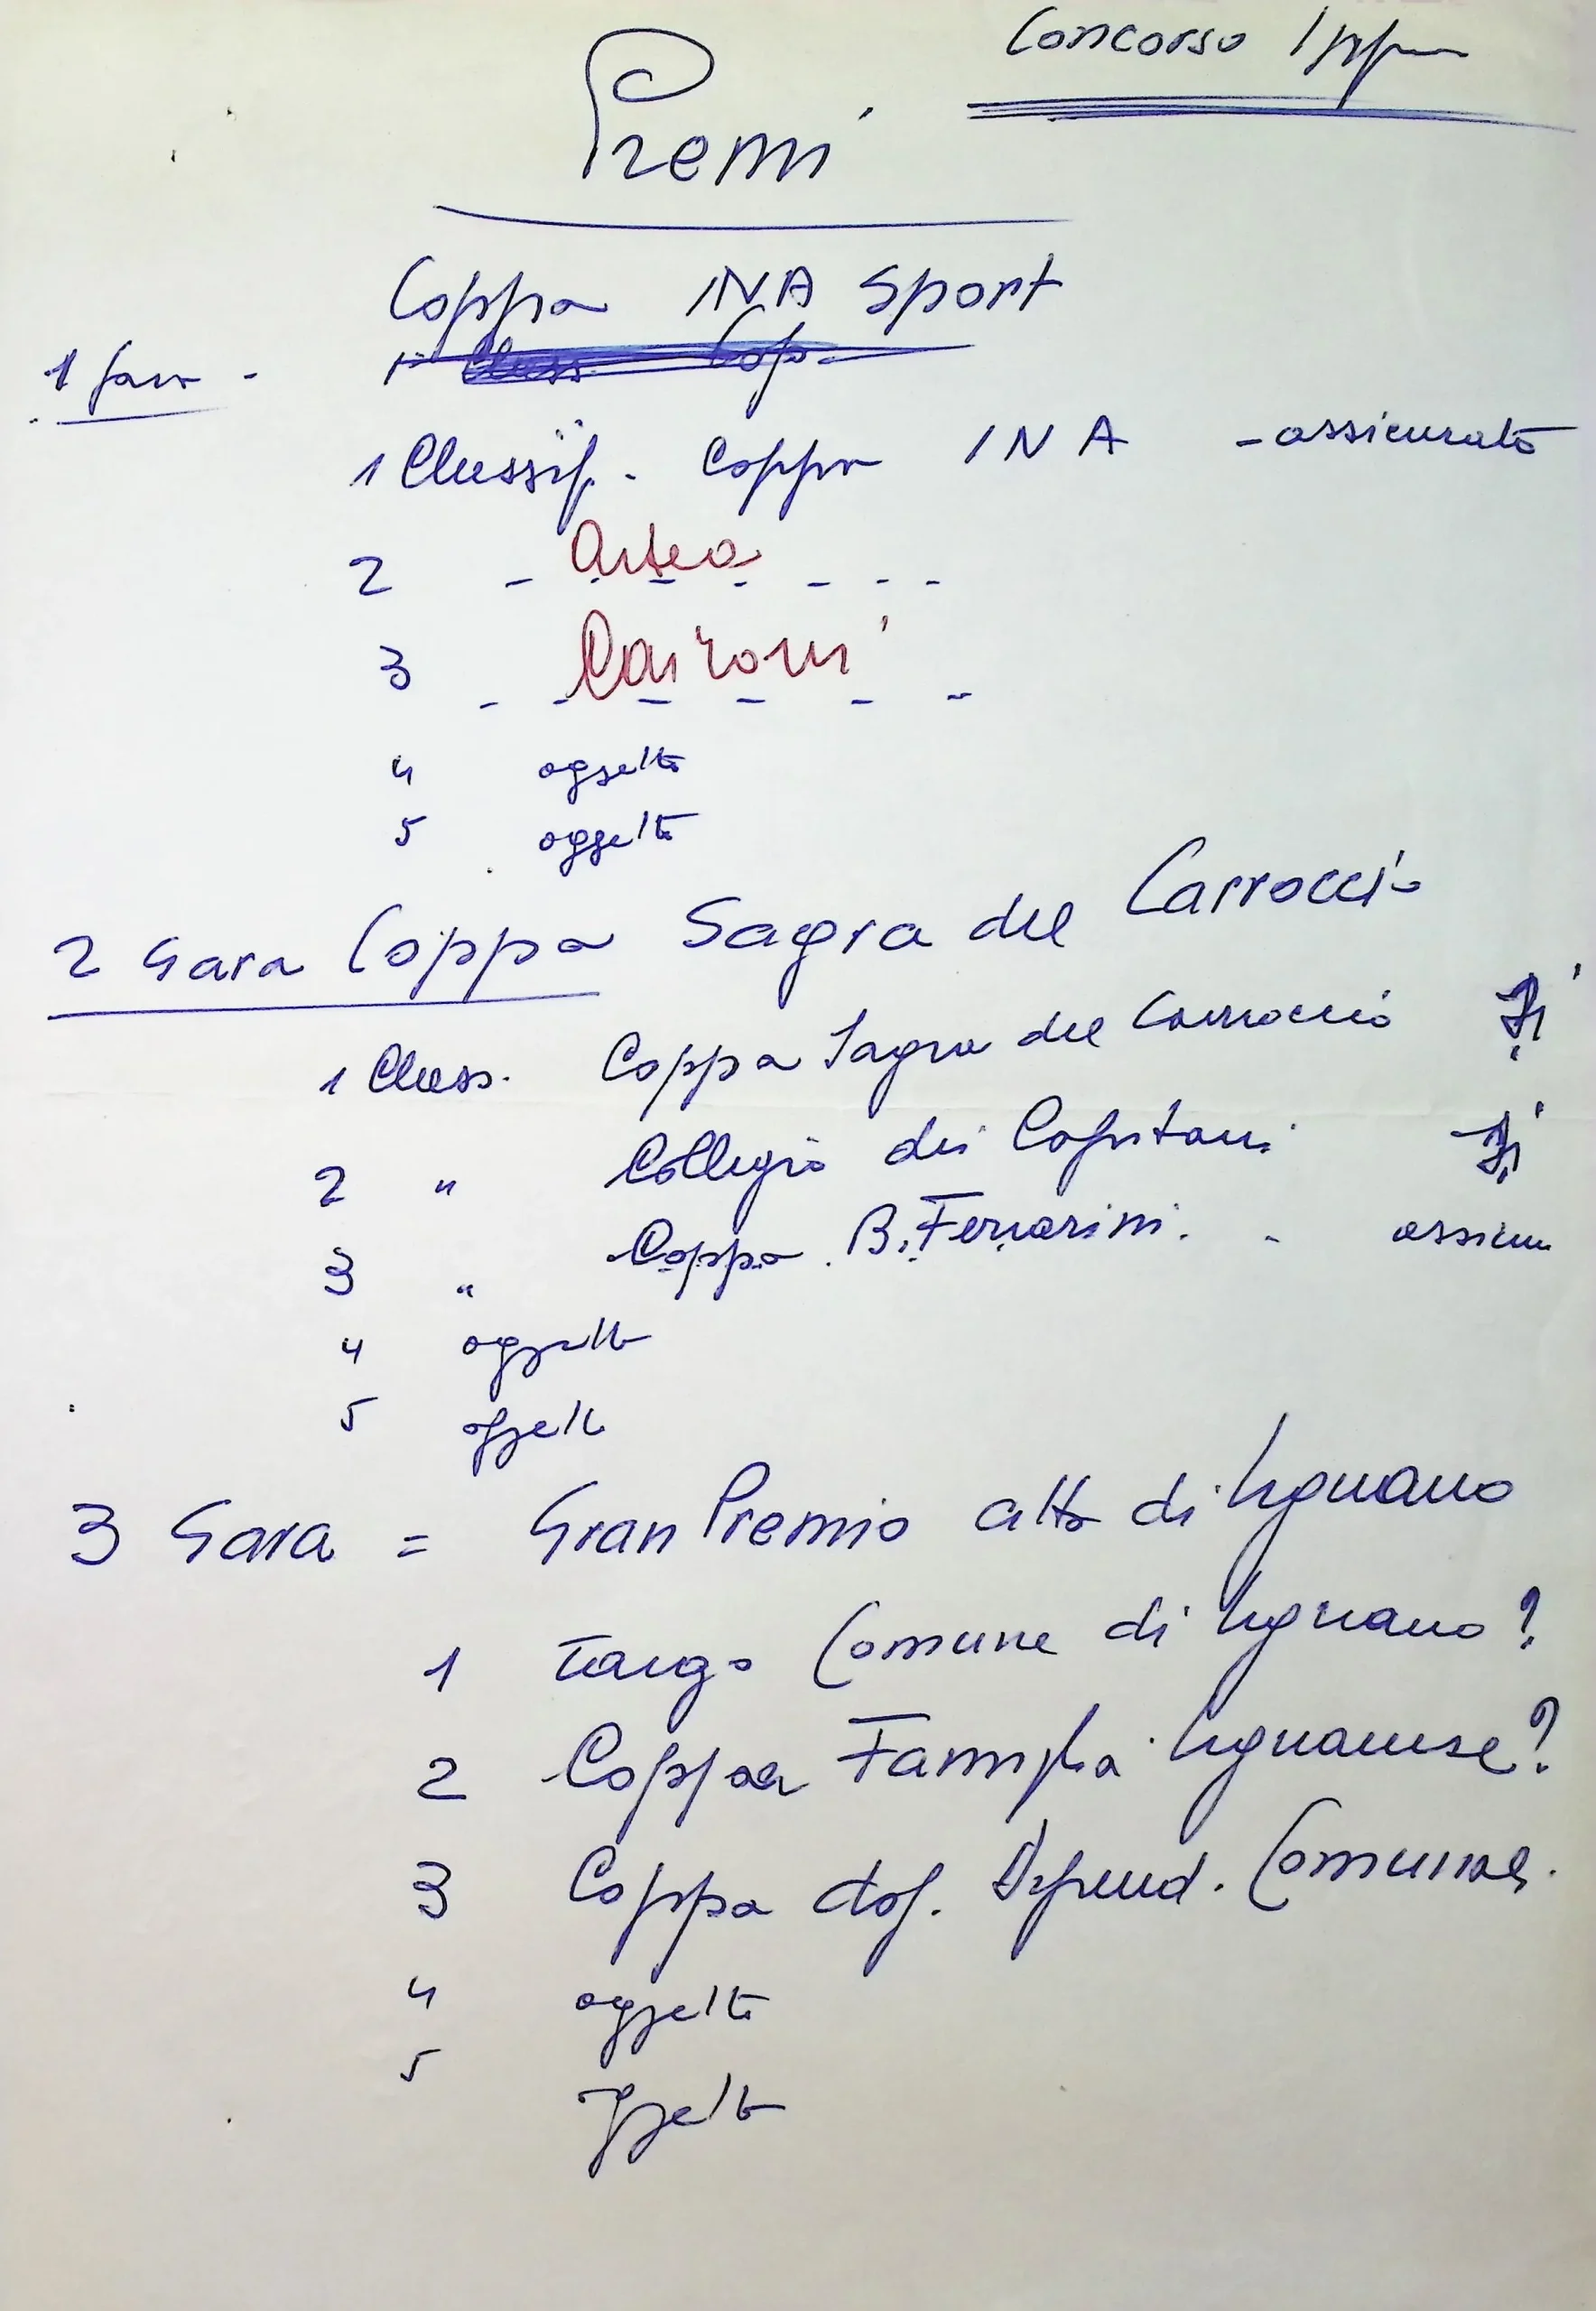 Concorso Ipp
Premi
Coppa INA Sport
1 gara -
1 Classif. Coppa INA - assicurato
2 - Artea - - -
3 - Caironi - -
4 oggetto
5 oggetto
2 Gara Coppa Sagra del Carroccio
1 Class. Coppa Sagra del Carroccio Sì
2 " Collegio dei Capitani Sì
3 " Coppa B. Ferrarini. - assicu
4 oggetto
5 oggetto
3 Gara = Gran Premio città di Legnano
1 Targa Comune di Legnano?
2 Coppa Famiglia Legnanese?
3 Coppa dop. Dipend. Comunal.
4 oggetto
5
oggetto